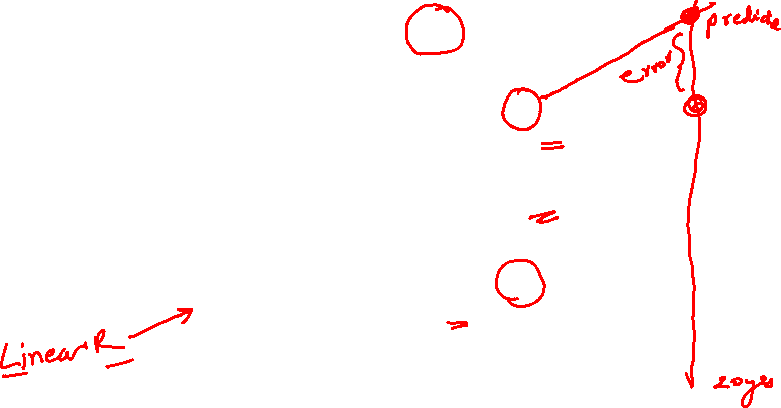 predicte
error
Linear R
20yrs